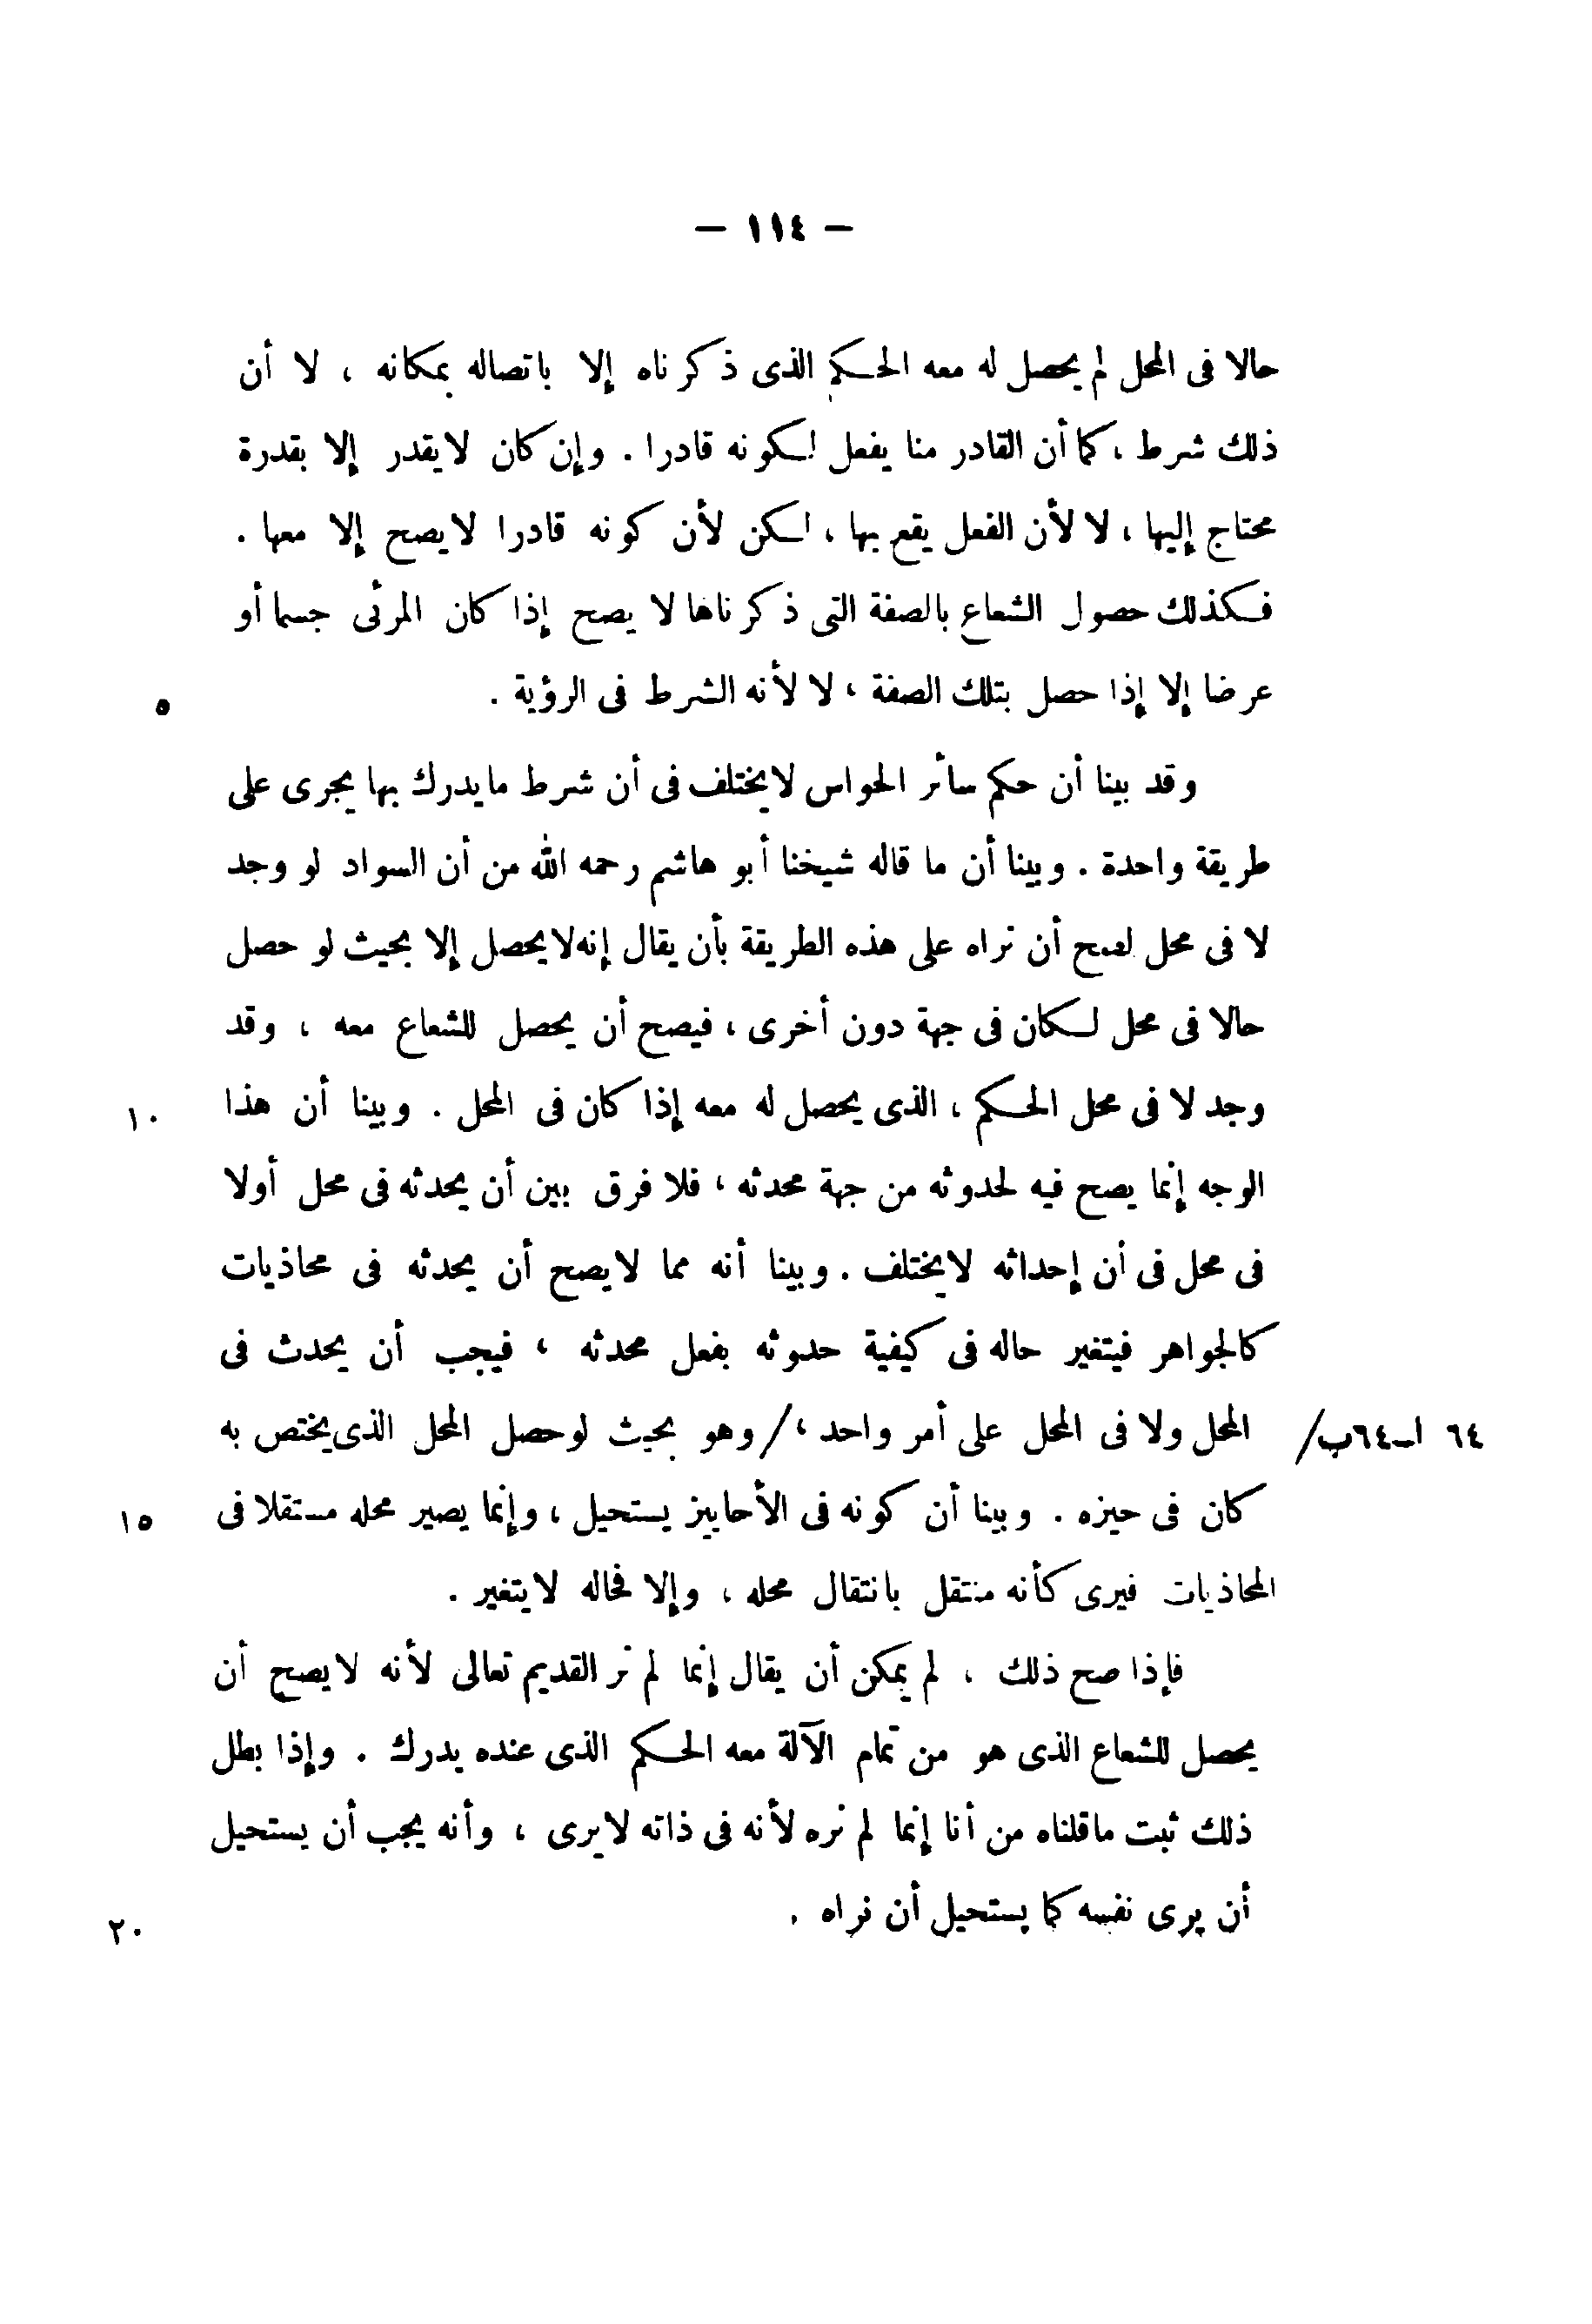 — ١١٤ —
حالا فى المحل لم يحصل له معه الحكم الذى ذكرناه إلا باتصاله بمكانه ، لا أن
ذلك شرط ، كما أن القادر منا يفعل لكونه قادرا . وإن كان لايقدر إلا بقدرة
محتاج إليها ، لا لأن الفعل يقع بها ، لكن لأن كونه قادرا لايصح إلا معها .
فكذلك حصول الشعاع بالصفة التى ذكرناها لا يصح إذا كان المرئى جسما أو
عرضا إلا إذا حصل بتلك الصفة ، لا لأنه الشرط فى الرؤية .
٥
وقد بينا أن حكم سائر الحواس لايختلف فى أن شرط مايدرك بها يجرى على
طريقة واحدة . وبينا أن ما قاله شيخنا أبو هاشم رحمه الله من أن السواد لو وجد
لا فى محل لصح أن نراه على هذه الطريقة بأن يقال إنه لايحصل إلا بحيث لو حصل
حالا فى محل لكان فى جهة دون أخرى ، فيصح أن يحصل للشعاع معه ، وقد
وجد لا فى محل الحكم ، الذى يحصل له معه إذا كان فى المحل . وبينا أن هذا
١٠
الوجه إنما يصح فيه لحدوثه من جهة محدثه ، فلا فرق بين أن يحدثه فى محل أولا
فى محل فى أن إحداثه لايختلف . وبينا أنه مما لايصح أن يحدثه فى محاذيات
كالجواهر فيتغير حاله فى كيفية حدوثه بفعل محدثه ، فيجب أن يحدث فى
٦٤ ا-٦٤ب/ المحل ولا فى المحل على أمر واحد ،/ وهو بحيث لوحصل المحل الذى يختص به
كان فى حيزه . وبينا أن كونه فى الأحاييز يستحيل ، وإنما يصير محله مستقلا فى
١٥
المحاذيات فيرى كأنه منتقل بانتقال محله ، وإلا فحاله لايتغير .
فإذا صح ذلك ، لم يمكن أن يقال إنما لم نر القديم تعالى لأنه لايصح أن
يحصل للشعاع الذى هو من تمام الآلة معه الحكم الذى عنده يدرك . وإذا بطل
ذلك ثبت ماقلناه من أنا إنما لم نره لأنه فى ذاته لايرى ، وأنه يجب أن يستحيل
أن يرى نفسه كما يستحيل أن نراه .
٢٠